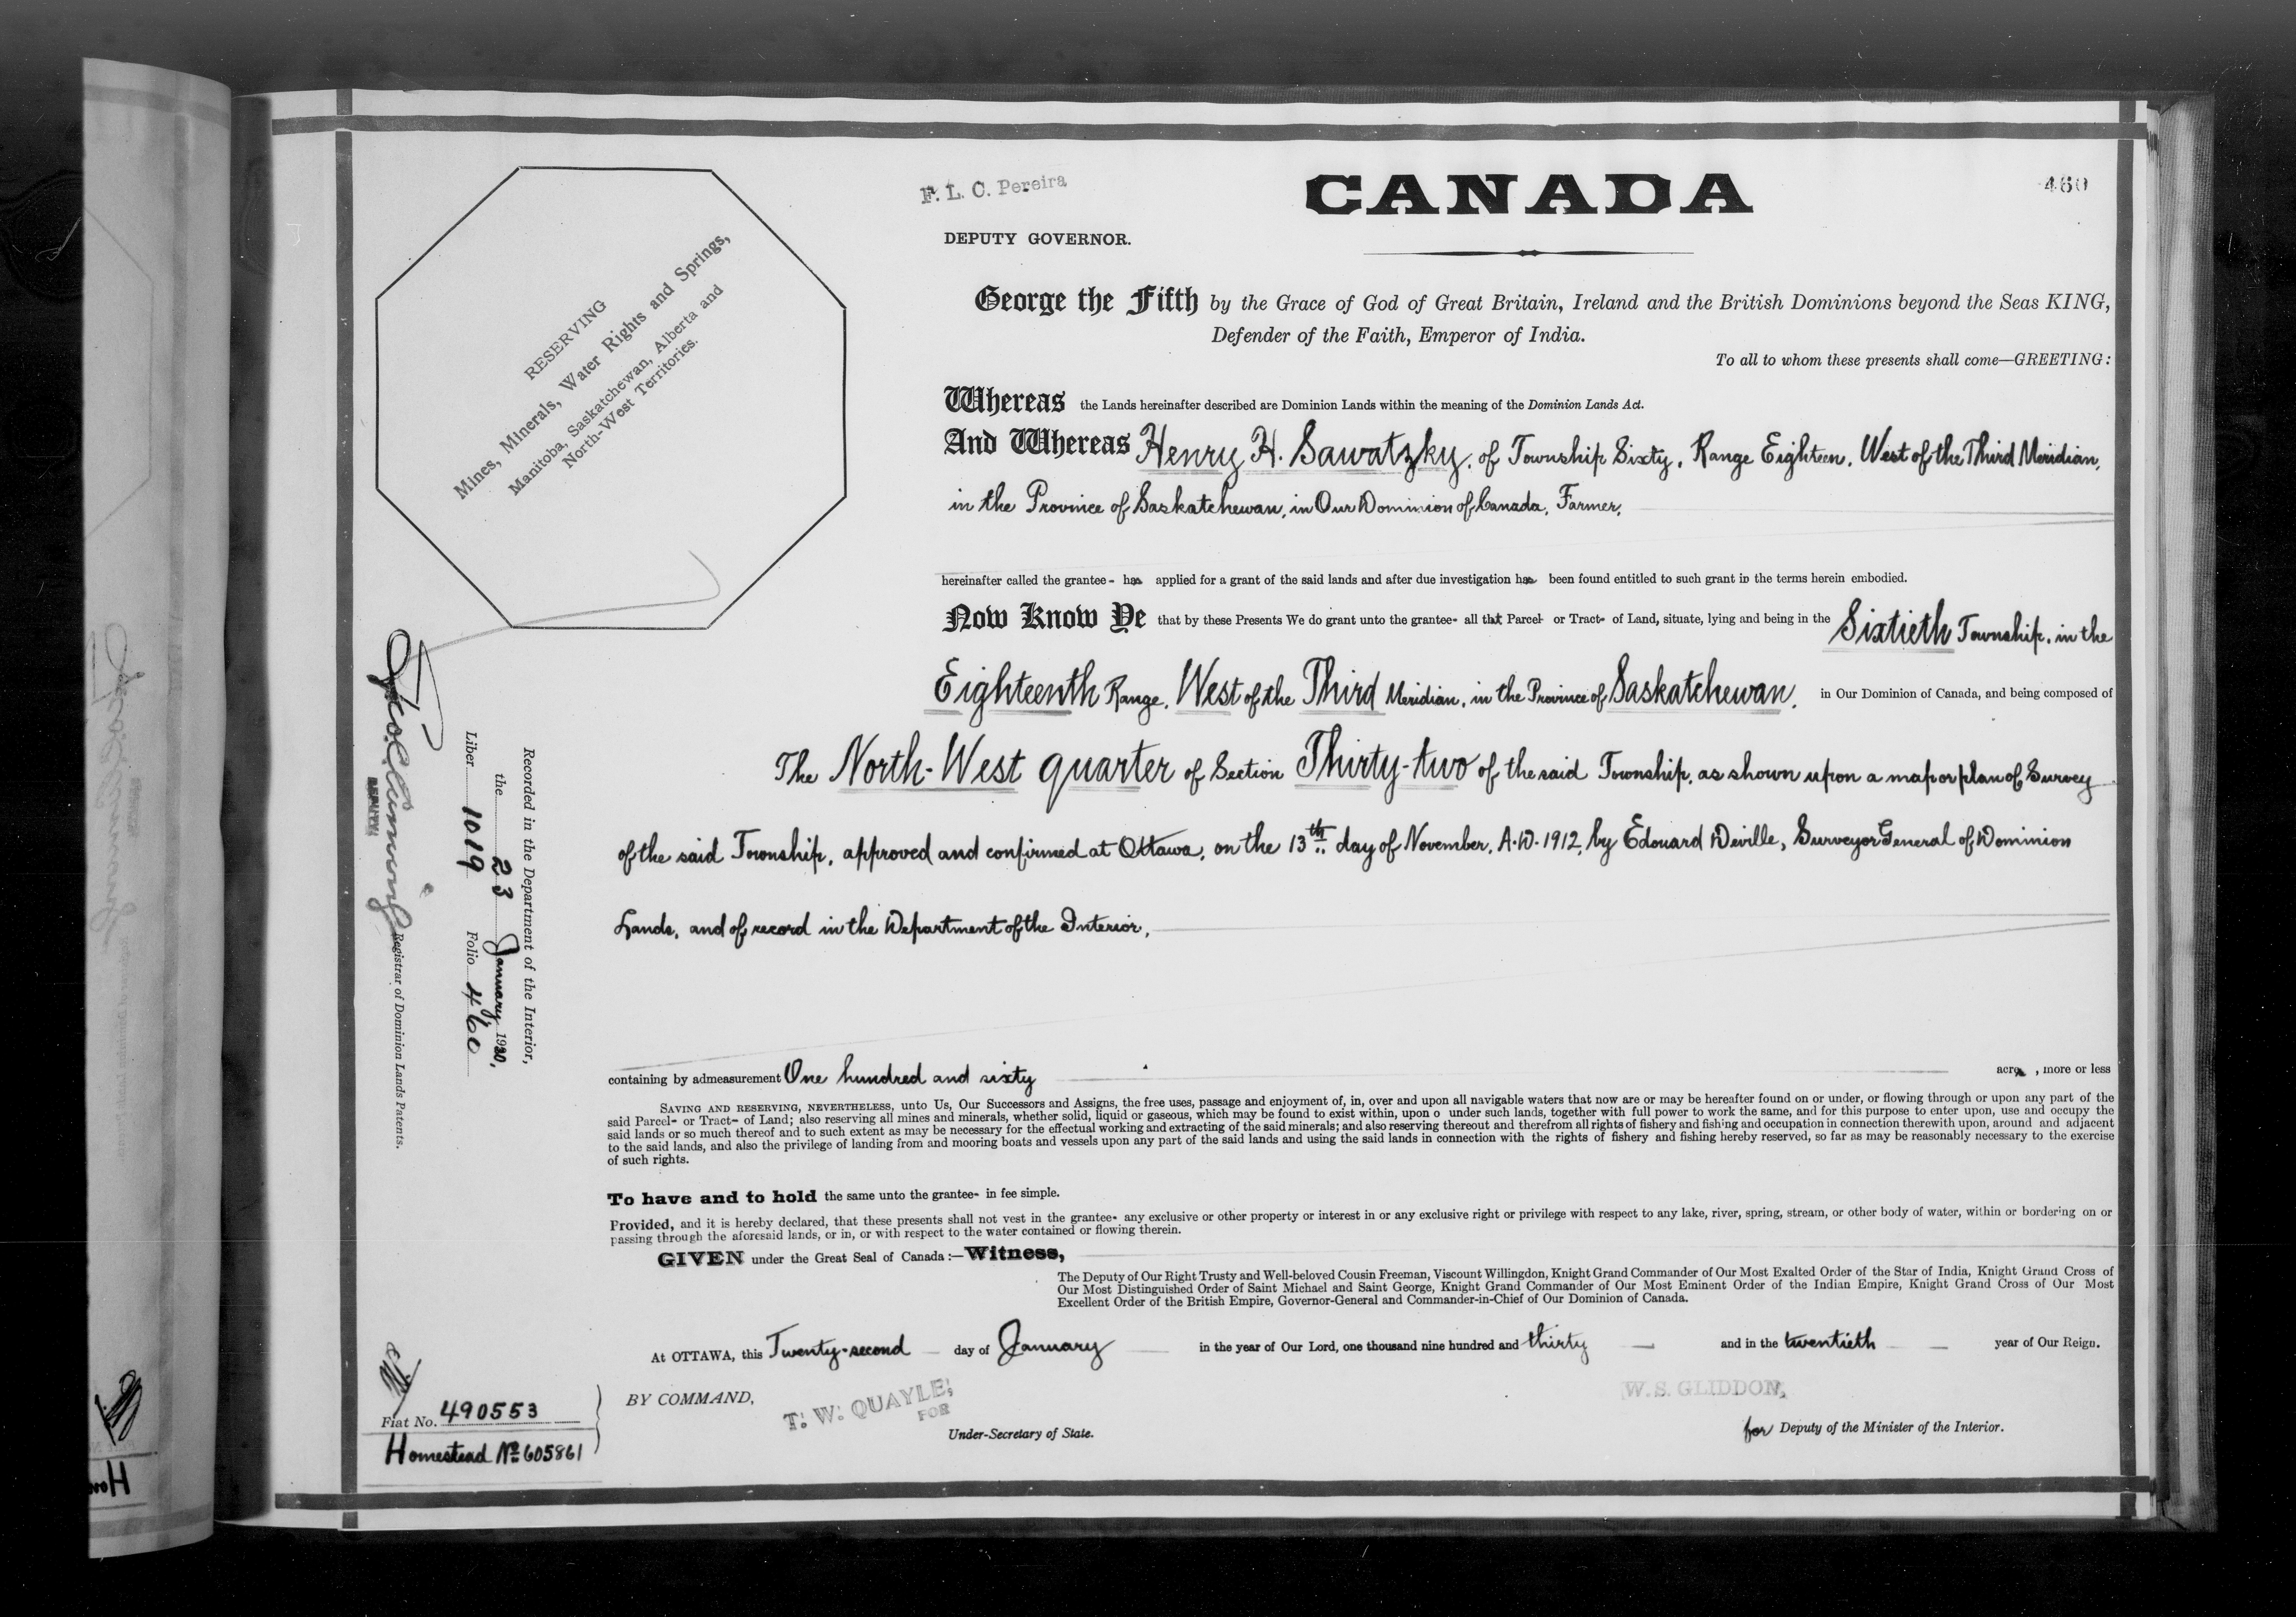 F. L. C. Pereira
CANADA
460
DEPUTY GOVERNOR.
RESERVING
Mines, Minerals, Water Rights and Springs,
Manitoba, Saskatchewan, Alberta and
North-West Territories.
George the Fifth by the Grace of God of Great Britain, Ireland and the British Dominions beyond the Seas KING,
Defender of the Faith, Emperor of India.
To all to whom these presents shall come—GREETING:
Whereas the Lands hereinafter described are Dominion Lands within the meaning of the Dominion Lands Act.
And Whereas Henry H. Sawatzky, of Township Sixty, Range Eighteen, West of the Third Meridian,
in the Province of Saskatchewan, in Our Dominion of Canada, Farmer,
hereinafter called the grantee- has applied for a grant of the said lands and after due investigation has been found entitled to such grant in the terms herein embodied.
Now Know Ye that by these Presents We do grant unto the grantee- all that Parcel- or Tract- of Land, situate, lying and being in the Sixtieth Township, in the
Eighteenth Range, West of the Third Meridian, in the Province of Saskatchewan, in Our Dominion of Canada, and being composed of
The North-West quarter of Section Thirty-two of the said Township, as shown upon a map or plan of Survey
of the said Township, approved and confirmed at Ottawa, on the 13th day of November, A.D. 1912, by Edouard Deville, Surveyor General of Dominion
Lands, and of record in the Department of the Interior,
containing by admeasurement One hundred and sixty acres, more or less
SAVING AND RESERVING, NEVERTHELESS, unto Us, Our Successors and Assigns, the free uses, passage and enjoyment of, in, over and upon all navigable waters that now are or may be hereafter found on or under, or flowing through or upon any part of the
said Parcel- or Tract- of Land; also reserving all mines and minerals, whether solid, liquid or gaseous, which may be found to exist within, upon o under such lands, together with full power to work the same, and for this purpose to enter upon, use and occupy the
said lands or so much thereof and to such extent as may be necessary for the effectual working and extracting of the said minerals; and also reserving thereout and therefrom all rights of fishery and fishing and occupation in connection therewith upon, around and adjacent
to the said lands, and also the privilege of landing from and mooring boats and vessels upon any part of the said lands and using the said lands in connection with the rights of fishery and fishing hereby reserved, so far as may be reasonably necessary to the exercise
of such rights.
To have and to hold the same unto the grantee- in fee simple.
Provided, and it is hereby declared, that these presents shall not vest in the grantee- any exclusive or other property or interest in or any exclusive right or privilege with respect to any lake, river, spring, stream, or other body of water, within or bordering on or
passing through the aforesaid lands, or in, or with respect to the water contained or flowing therein.
GIVEN under the Great Seal of Canada:—Witness,
The Deputy of Our Right Trusty and Well-beloved Cousin Freeman, Viscount Willingdon, Knight Grand Commander of Our Most Exalted Order of the Star of India, Knight Grand Cross of
Our Most Distinguished Order of Saint Michael and Saint George, Knight Grand Commander of Our Most Eminent Order of the Indian Empire, Knight Grand Cross of Our Most
Excellent Order of the British Empire, Governor-General and Commander-in-Chief of Our Dominion of Canada.
At OTTAWA, this Twenty-second day of January in the year of Our Lord, one thousand nine hundred and thirty and in the twentieth year of Our Reign.
BY COMMAND,
T. W. QUAYLE,
FOR
Under-Secretary of State.
W. S. GLIDDON,
for Deputy of the Minister of the Interior.
Recorded in the Department of the Interior,
the 23 January 1930,
Liber 1019 Folio 460
DEPUTY
Registrar of Dominion Lands Patents.
Fiat No. 490553
Homestead No 605861